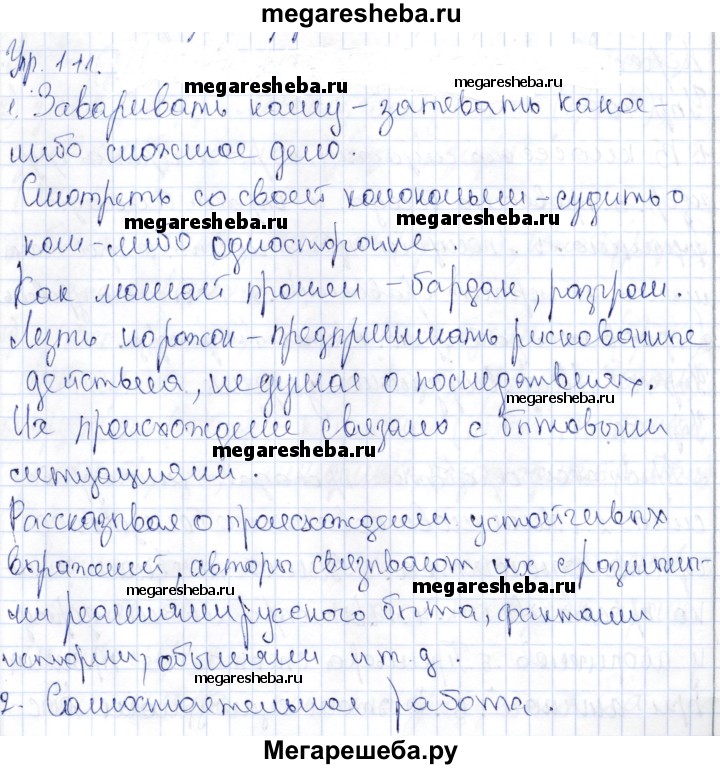 megaresheba.ru
Упр. 111.
megaresheba.ru
megaresheba.ru
1. Заваривать кашу – затевать какое-
либо сложное дело.
Смотреть со своей колокольни – судить о
megaresheba.ru
megaresheba.ru
ком-либо односторонне.
Как мамай прошел – бардак, разгром.
Лезть на рожон – предпринимать рискованные
действия, не думая о последствиях.
megaresheba.ru
Их происхождение связано с бытовыми
megaresheba.ru
ситуациями.
Рассказывая о происхождении устойчивых
выражений, авторы связывают их с различны-
megaresheba.ru
megaresheba.ru
ми реалиями русского быта, фактами
истории, обычаями и т. д.
megaresheba.ru
2. Самостоятельная работа.
Мегарешеба.ру